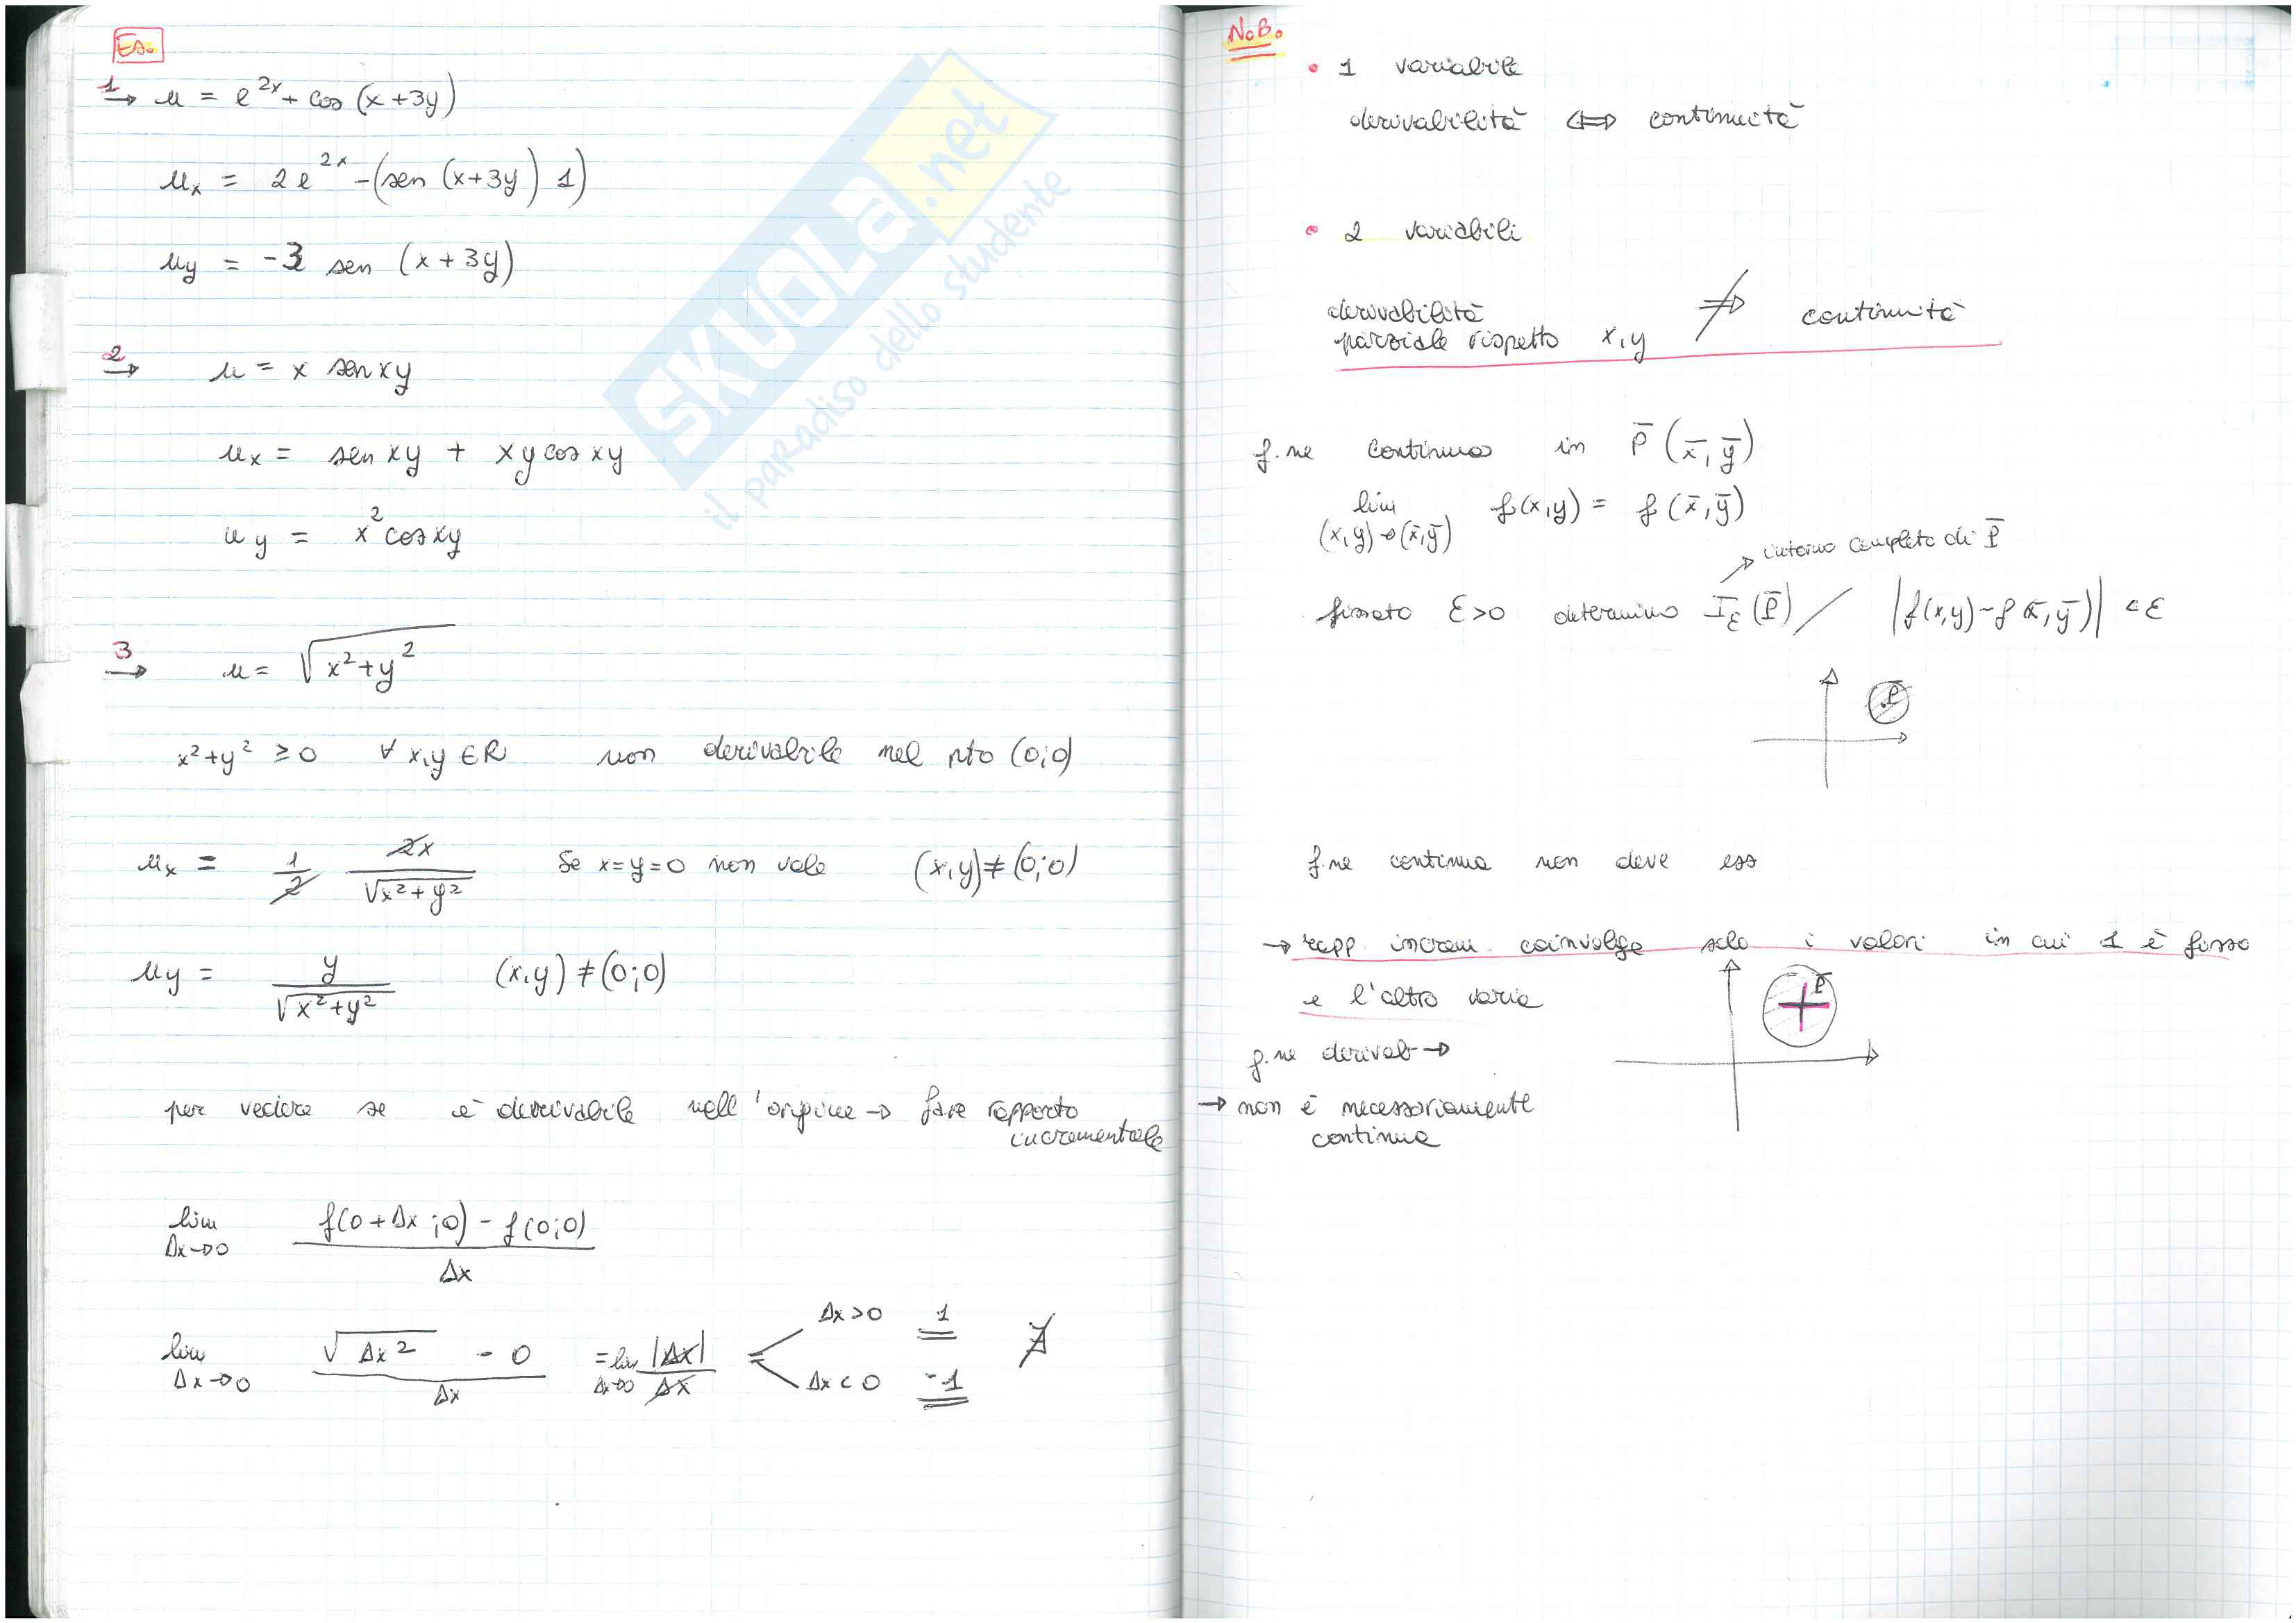 Es.
1 → u = e^{2x} + cos (x+3y)
u_x = 2e^{2x} - (sen (x+3y) 1)
u_y = -3 sen (x+3y)
2 → u = x sen xy
u_x = sen xy + xy cos xy
u_y = x² cos xy
3 → u = √(x²+y²)
x²+y² ≥ 0 ∀ x,y ∈ R non derivabile nel pto (0;0)
u_x = 1/2 2x/√(x²+y²) Se x=y=0 non vale (x,y) ≠ (0;0)
u_y = y/√(x²+y²) (x,y) ≠ (0;0)
per vedere se è derivabile nell'origine → fare rapporto
incrementale
lim Δx→0 (f(0+Δx;0) - f(0;0))/Δx
lim Δx→0 (√(Δx²) - 0)/Δx = lim Δx→0 |Δx|/Δx =
Δx>0 1
Δx<0 -1
∄
N.B.
• 1 variabile
derivabilità ⟺ continuità
• 2 variabili
derivabilità
parziale rispetto x,y ⇏ continuità
f.ne continua in P̄ (x̄, ȳ)
lim (x,y)→(x̄,ȳ) f(x,y) = f(x̄,ȳ)
→ intorno completo di P̄
fissato ε>0 determino I_ε(P̄) / |f(x,y) - f(x̄,ȳ)| < ε
P̄
f.ne continua non deve ess
→ rapp. increm. coinvolge solo i valori in cui 1 è fisso
e l'altro varia
P̄
f.ne derivab →
→ non è necessariamente
continua
SKUOLA.net
il paradiso dello studente